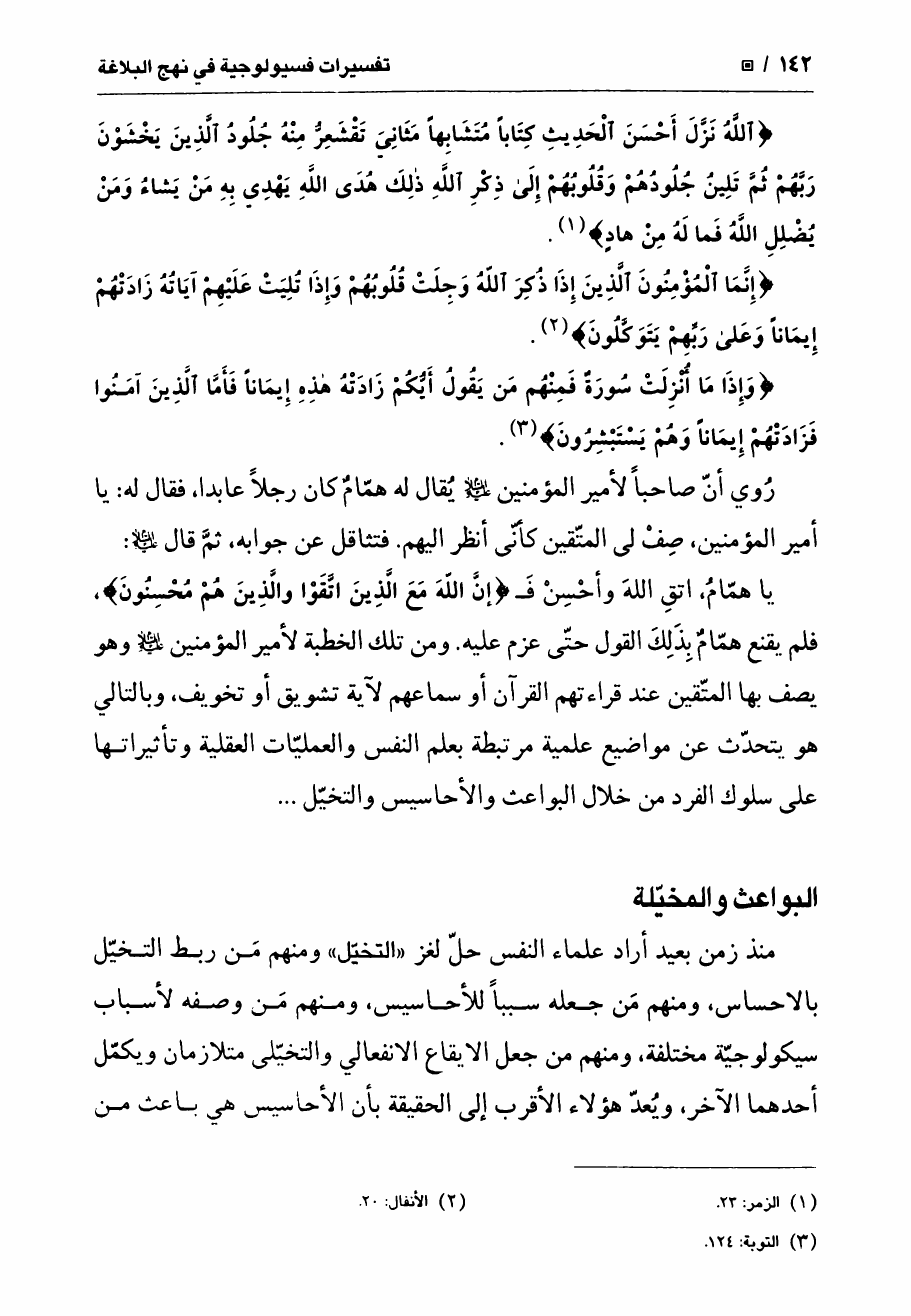 ١٤٢ / تفسيرات فسيولوجية في نهج البلاغة
﴿ٱللَّهُ نَزَّلَ أَحْسَنَ ٱلْحَدِيثِ كِتَاباً مُتَشَابِهاً مَثَانِيَ تَقْشَعِرُّ مِنْهُ جُلُودُ ٱلَّذِينَ يَخْشَوْنَ
رَبَّهُمْ ثُمَّ تَلِينُ جُلُودُهُمْ وَقُلُوبُهُمْ إِلَىٰ ذِكْرِ ٱللَّهِ ذٰلِكَ هُدَى اللَّهِ يَهْدِي بِهِ مَنْ يَشاءُ وَمَنْ
يُضْلِلِ اللَّهُ فَما لَهُ مِنْ هادٍ﴾(١).
﴿إِنَّمَا ٱلْمُؤْمِنُونَ ٱلَّذِينَ إِذَا ذُكِرَ ٱللّهُ وَجِلَتْ قُلُوبُهُمْ وَإِذَا تُلِيَتْ عَلَيْهِمْ آيَاتُهُ زَادَتْهُمْ
إِيمَاناً وَعَلىٰ رَبِّهِمْ يَتَوَكَّلُونَ﴾(٢).
﴿وَإِذَا مَا أُنْزِلَتْ سُورَةٌ فَمِنْهُم مَن يَقُولُ أَيُّكُمْ زَادَتْهُ هٰذِهِ إِيمَاناً فَأَمَّا ٱلَّذِينَ آمَـنُوا
فَزَادَتْهُمْ إِيمَاناً وَهُمْ يَسْتَبْشِرُونَ﴾(٣).
رُوي أنّ صاحباً لأمير المؤمنين ﷷ يُقال له همّامٌ كان رجلاً عابدا، فقال له: يا
أمير المؤمنين، صِفْ لى المتّقين كأنّى أنظر اليهم. فتثاقل عن جوابه، ثمَّ قال ﷷ:
يا همّامُ، اتقِ اللهَ وأحْسِنْ فَـ ﴿إنَّ اللّهَ مَعَ الَّذِينَ اتَّقَوْا والَّذِينَ هُمْ مُحْسِنُونَ﴾،
فلم يقنع همّامٌ بِذَلِكَ القول حتّى عزم عليه. ومن تلك الخطبة لأمير المؤمنين ﷷ وهو
يصف بها المتّقين عند قراءتهم القرآن أو سماعهم لآية تشويق أو تخويف، وبالتالي
هو يتحدّث عن مواضيع علمية مرتبطة بعلم النفس والعمليّات العقلية وتأثيراتـها
على سلوك الفرد من خلال البواعث والأحاسيس والتخيّل ...
البواعث والمخيّلة
منذ زمن بعيد أراد علماء النفس حلّ لغز «التخيّل» ومنهم مَـن ربـط التـخيّل
بالاحساس، ومنهم مَن جـعله سـبباً للأحـاسيس، ومـنهم مَـن وصـفه لأسـباب
سيكولوجيّة مختلفة، ومنهم من جعل الايقاع الانفعالي والتخيّلى متلازمان ويكمّل
أحدهما الآخر، ويُعدّ هؤلاء الأقرب إلى الحقيقة بأن الأحاسيس هي بـاعث مـن
(١) الزمر: ٢٣.
(٢) الأنفال: ٢٠.
(٣) التوبة: ١٢٤.